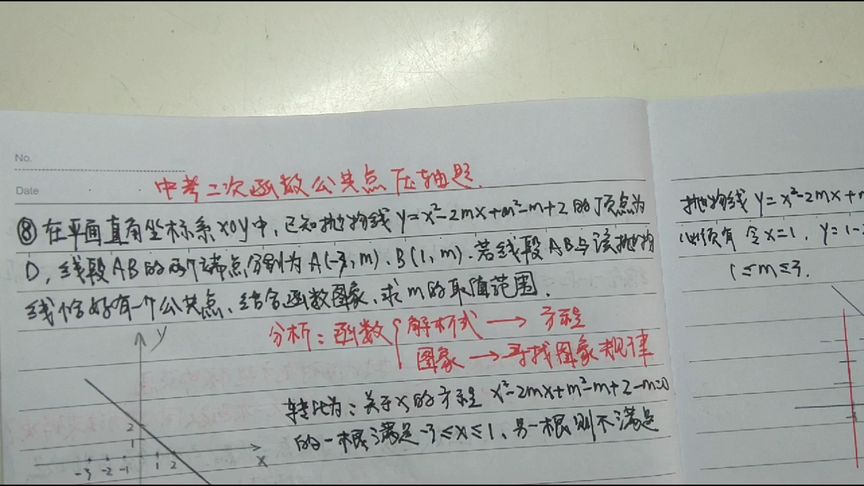 No.
Date
中考二次函数公共点压轴题.
⑧在平面直角坐标系xoy中,已知抛物线y=x²-2mx+m²-m+2的顶点为
D,线段AB的两个端点分别为A(-3,m).B(1,m).若线段AB与该抛物
线恰好有一个公共点,结合函数图象,求m的取值范围.
分析:函数{解析式→方程
图象→寻找图象规律
转化为:关于x的方程 x²-2mx+m²-m+2-m=0
的一根满足-3≤x≤1,另一根则不满足
y
2
1
-3 -2 -1 1 2 x
抛物线y=x²-2mx+
必须有 令x=1, y=1-
1≤m≤3.